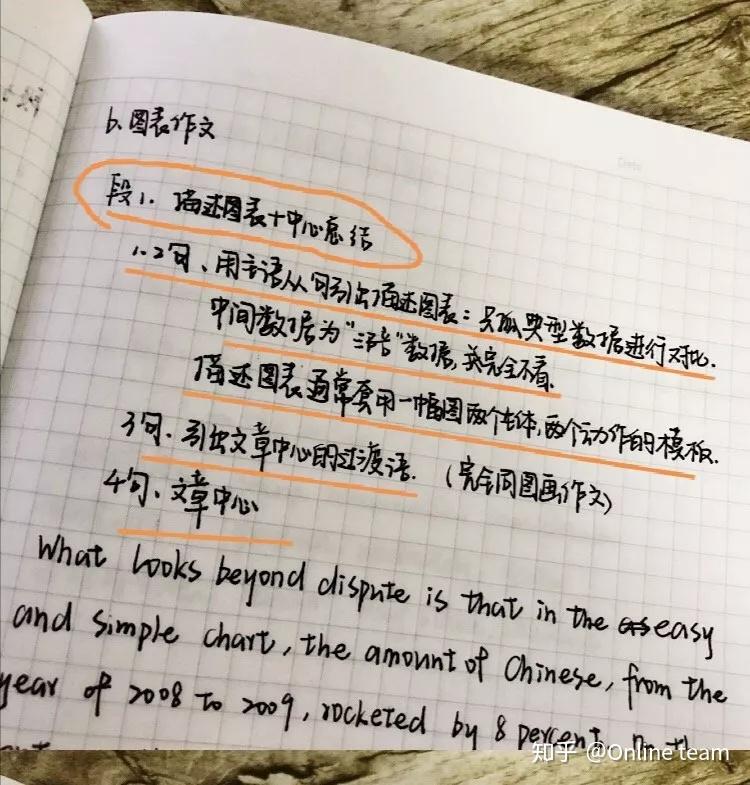 b.图表作文
段1. 描述图表+中心总结
1.2句、用主语从句引出描述图表：只抓典型数据进行对比.
中间数据为"误"数据,英完全不看.
描述图表通常套用一幅图两个主体,两个动作的模板.
3句、引出文章中心的过渡语. (完全同图画作文)
4句、文章中心
What looks beyond dispute is that in the easy
and simple chart, the amount of Chinese, from the
year of 2008 to 2009, rocketed by 8 percent
知乎 @Online team